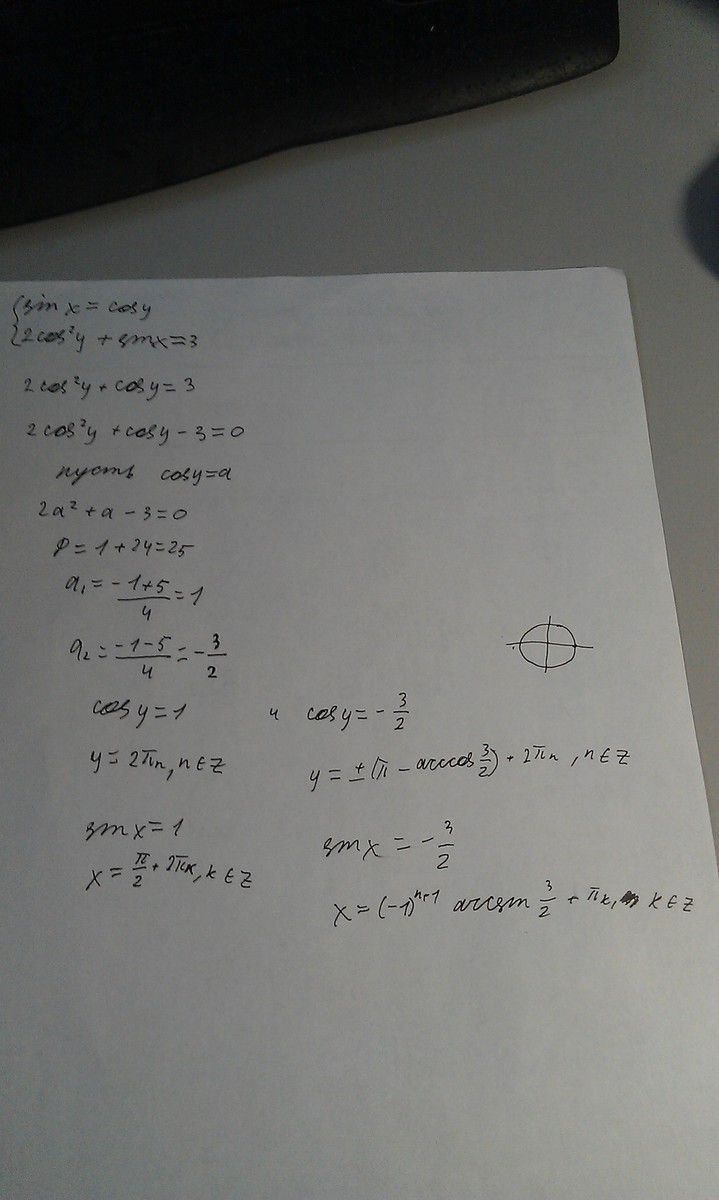 { sin x = cos y
2cos²y + sin x = 3
2cos²y + cos y = 3
2cos²y + cos y - 3 = 0
пусть cos y = a
2a² + a - 3 = 0
D = 1 + 24 = 25
a₁ = (-1+5)/4 = 1
a₂ = (-1-5)/4 = -3/2
cos y = 1 и cos y = -3/2
y = 2πn, n ∈ Z y = ±(π - arccos 3/2) + 2πn, n ∈ Z
sin x = 1 sin x = -3/2
x = π/2 + 2πk, k ∈ Z x = (-1)ⁿ⁺¹ arcsin 3/2 + πk, k ∈ Z